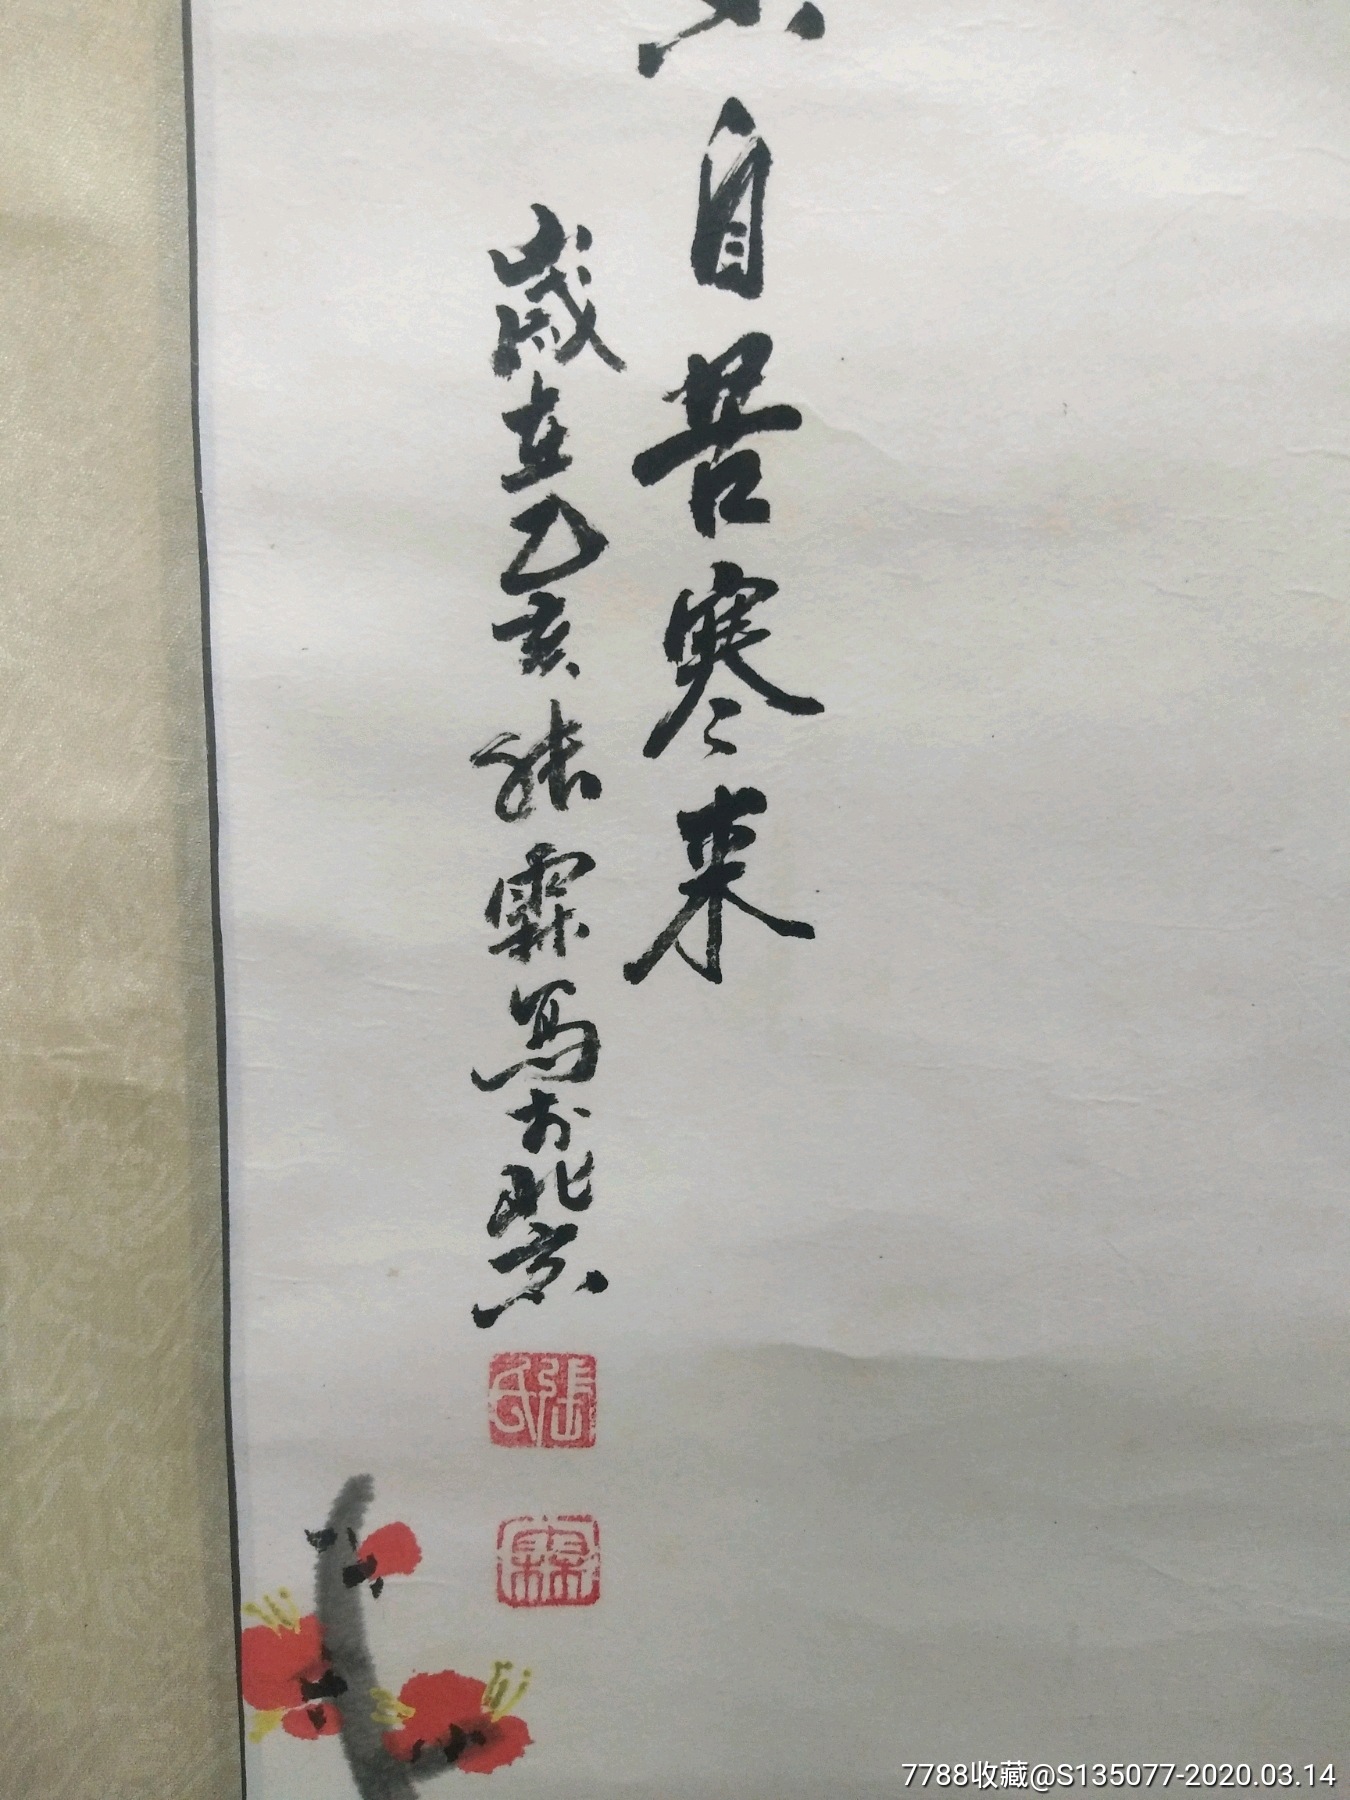 自苦寒来
歲在乙亥張霖寫於北京
張氏
霖
7788收藏@S135077-2020.03.14